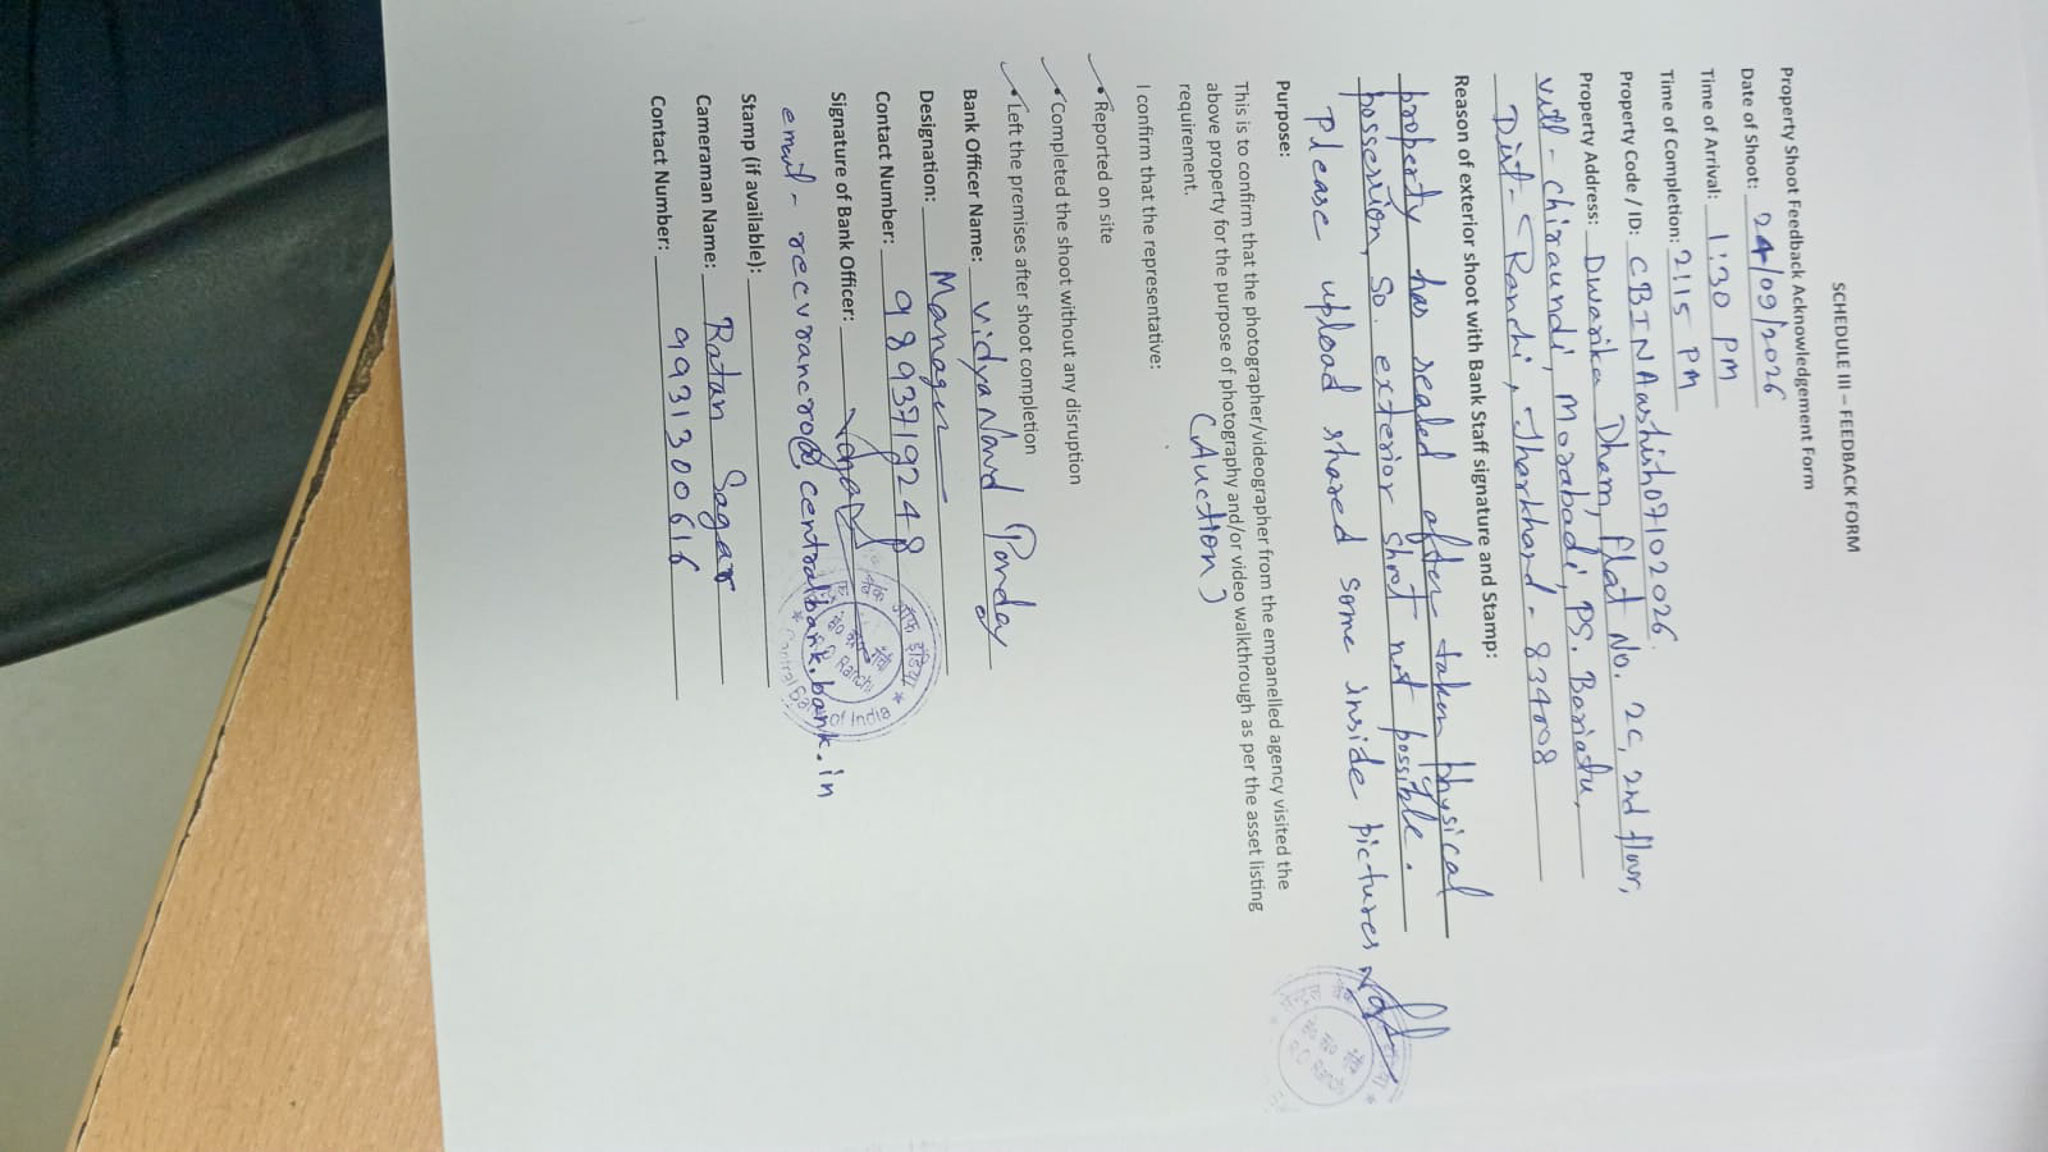 SCHEDULE III – FEEDBACK FORM
Property Shoot Feedback Acknowledgement Form
Date of Shoot: 24/09/2026
Time of Arrival: 1:30 PM
Time of Completion: 2:15 PM
Property Code / ID: CBINAashish07102026
Property Address: Dwarika Dham, flat No. 2C, 2nd floor,
vill - chiraundi, Morabadi, PS. Bariatu,
Dist - Ranchi, Jharkhand - 834008
Reason of exterior shoot with Bank Staff signature and Stamp:
property has sealed after taken physical
possession, So. exterior shoot not possible.
Please upload shared some inside pictures
Purpose:
This is to confirm that the photographer/videographer from the empanelled agency visited the
above property for the purpose of photography and/or video walkthrough as per the asset listing
requirement.
(Auction)
I confirm that the representative:
• Reported on site
• Completed the shoot without any disruption
• Left the premises after shoot completion
Bank Officer Name: Vidya Nand Panday
Designation: Manager
Contact Number: 9893719248
Signature of Bank Officer:
email - recvrancro@centralbank.bank.in
Stamp (if available):
Cameraman Name: Ratan Sagar
Contact Number: 9931300616
बैंक ऑफ इंडिया
Ranchi
Central Bank of India